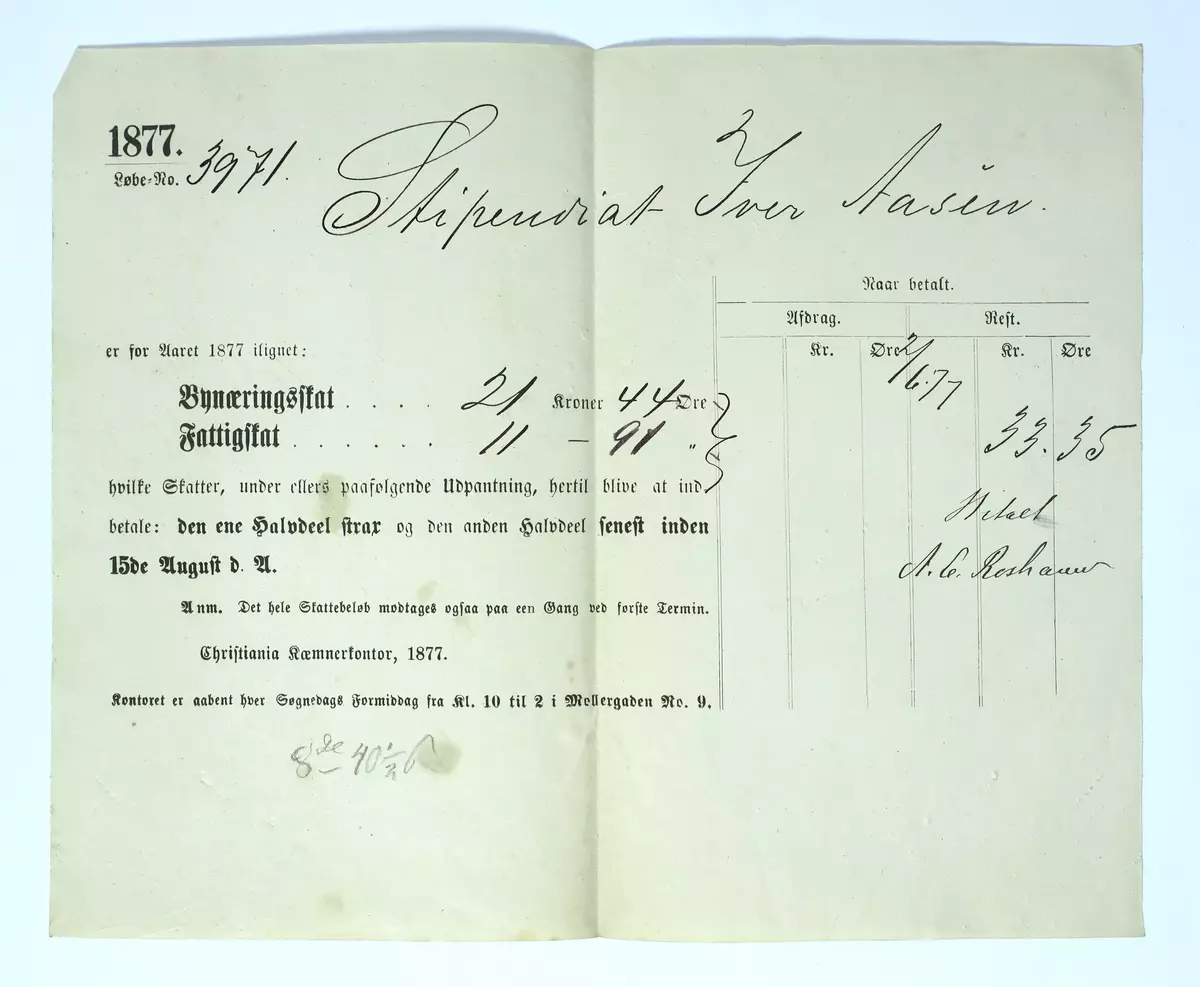 1877.
Løbe-No. 3971.
Stipendiat Iver Aasen.
er for Aaret 1877 ilignet:
Bynæringsskat . . . . 21 Kroner 44 Øre
Fattigskat . . . . . . 11 — 91 "
hvilke Skatter, under ellers paafølgende Udpantning, hertil blive at ind-
betale: den ene Halvdeel strax og den anden Halvdeel senest inden
15de August d. A.
Anm. Det hele Skattebeløb modtages ogsaa paa een Gang ved første Termin.
Christiania Kæmnerkontor, 1877.
Kontoret er aabent hver Søgnedags Formiddag fra Kl. 10 til 2 i Møllergaden No. 9.
Naar betalt.
Afdrag. Rest.
Kr. Øre Kr. Øre
2/6.77
33. 35
A. C.